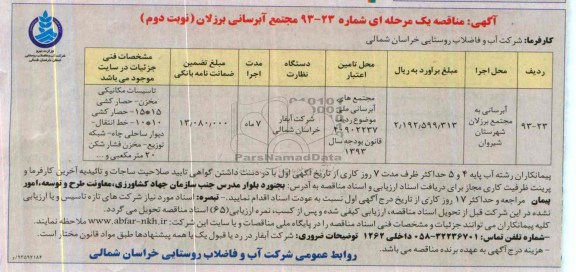 آگهی: مناقصه یک مرحله ای شماره ۲۳-۹۳ مجتمع آبرسانی برزلان (نوبت دوم)
کارفرما: شرکت آب و فاضلاب روستایی خراسان شمالی
ردیف
محل اجرا
مبلغ برآورد به ریال
محل تامین اعتبار
دستگاه نظارت
مدت اجرا
مبلغ تضمین ضمانت نامه بانکی
مشخصات فنی جزئیات در سایت موجود می باشد
۹۳-۲۳
آبرسانی به مجتمع برزلان شهرستان شیروان
۲/۱۹۲/۵۹۹/۳۱۳
مجتمع های آبرسانی ملی موضوع ردیف ۴۰۹۰۲۲۳۷ قانون بودجه سال ۱۳۹۳
شرکت آبفار خراسان شمالی
۷ ماه
۱۳/۰۸۰/۰۰۰
تاسیسات مکانیکی مخزن- حصار کشی ۱۵*۱۵- حصار کشی ۱۰*۱۰- خط انتقال- دیوار ساحلی چاه- شبکه توزیع- مخزن فشار شکن ۲۰ متر مکعبی و...
پیمانکاران رشته آب پایه ۴ و ۵ حداکثر ظرف مدت ۷ روز کاری از تاریخ آگهی اول با در دست داشتن گواهی تایید صلاحیت ساجات و تائیدیه آخرین کارفرما و
پرینت ظرفیت کاری مجاز برای دریافت اسناد ارزیابی و اسناد مناقصه به آدرس: بجنورد بلوار مدرس جنب سازمان جهاد کشاورزی، معاونت طرح و توسعه، امور
پیمان مراجعه و حداکثر ۱۷ روز کاری از تاریخ درج آگهی اول نسبت به عودت اسناد اقدام نمایید. - تبصره: اسناد مورد نیاز شرکت های تازه تاسیس و یا ارزیابی
نشده در این شرکت قبل از تحویل اسناد مناقصه، ارزیابی کیفی شده و پس از کسب نمره ارزیابی (۶۵) اسناد مناقصه تحویل می گردد.
کلیه پیمانکاران می توانند جزئیات و مشخصات فنی اسناد مناقصه را در پایگاه ملی مناقصات و یا سایت این شرکت: www.abfar-nkh.ir ملاحظه نمایند.
-شماره تماس: ۳۲۲۳۶۷۰۱-۰۵۸ داخلی ۱۲۶۲ توضیحات ضروری: شرکت آبفار در رد یا قبول یک یا همه پیشنهادها طبق مواد قانون مختار است.
- هزینه درج آگهی به عهده برنده مناقصه می باشد.
روابط عمومی شرکت آب و فاضلاب روستایی خراسان شمالی
ParsNamadData